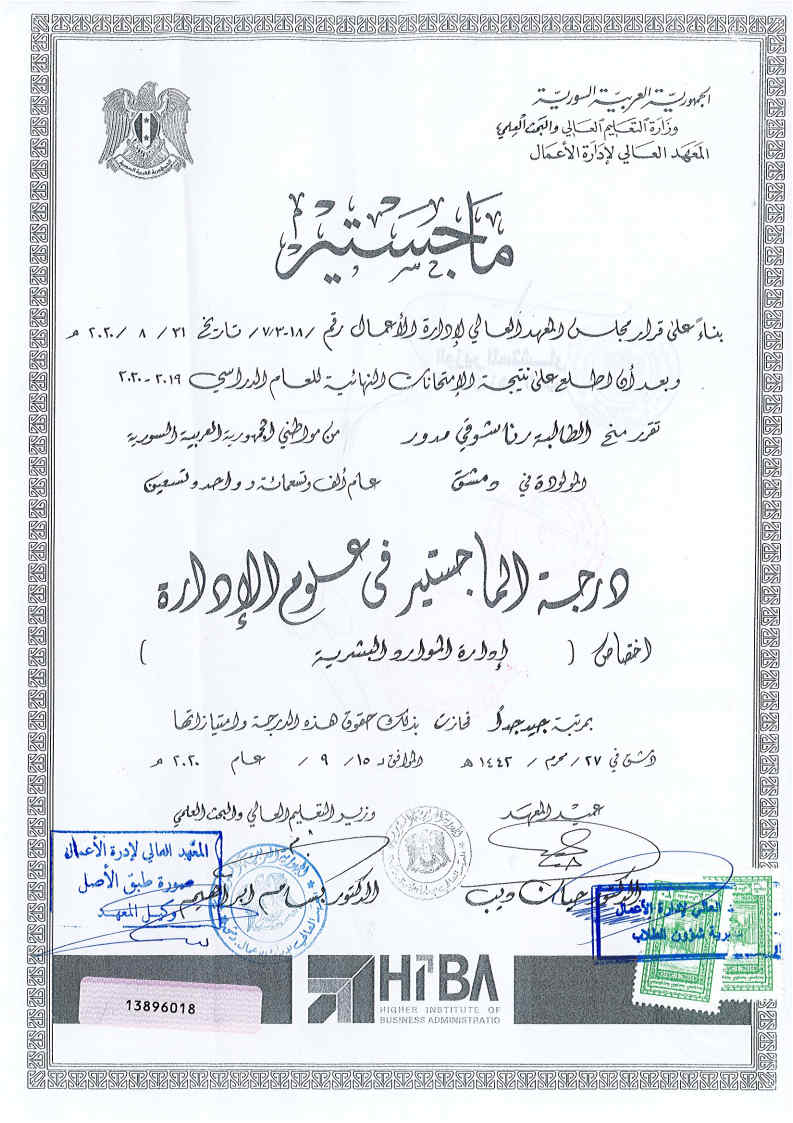 الجمهوريّة العربيّة السوريّة
وزارة التعليم العالي والبحث العلمي
المعهد العالي لإدارة الأعمال
ماجستير
بناءً على قرار مجلس المعهد العالي لإدارة الأعمال رقم /٧/٣٠١٨ تاريخ ٣١ / ٨ /٢٠٢٠ م
وبعد أن اطلع على نتيجة الامتحانات النهائية للعام الدراسي ٢٠١٩-٢٠٢٠
تقرر منح الطالبة رنا شوقي مدور من مواطني الجمهورية العربية السورية
المولودة في دمشق عام ألف وتسعمائة وواحد وتسعين
درجة الماجستير في علوم الإدارة
اختصاص ( إدارة الموارد البشرية )
بمرتبة جيد جداً فحازت بذلك حقوق هذه الدرجة وامتيازاتها
دمشق في ٢٧/ محرم /١٤٤٢ هـ الموافق لـ ١٥/ ٩ / عام ٢٠٢٠ م
عميد المعهد وزير التعليم العالي والبحث العلمي
الدكتور حيان ديب الدكتور بسام ابراهيم
المعهد العالي لإدرة الأعمال
صورة طبق الأصل
وكيل المعهد
العالي لإدارة الأعمال
شؤون الطلاب
HIBA
HIGHER INSTITUTE OF
BUSINESS ADMINISTRATIO
13896018